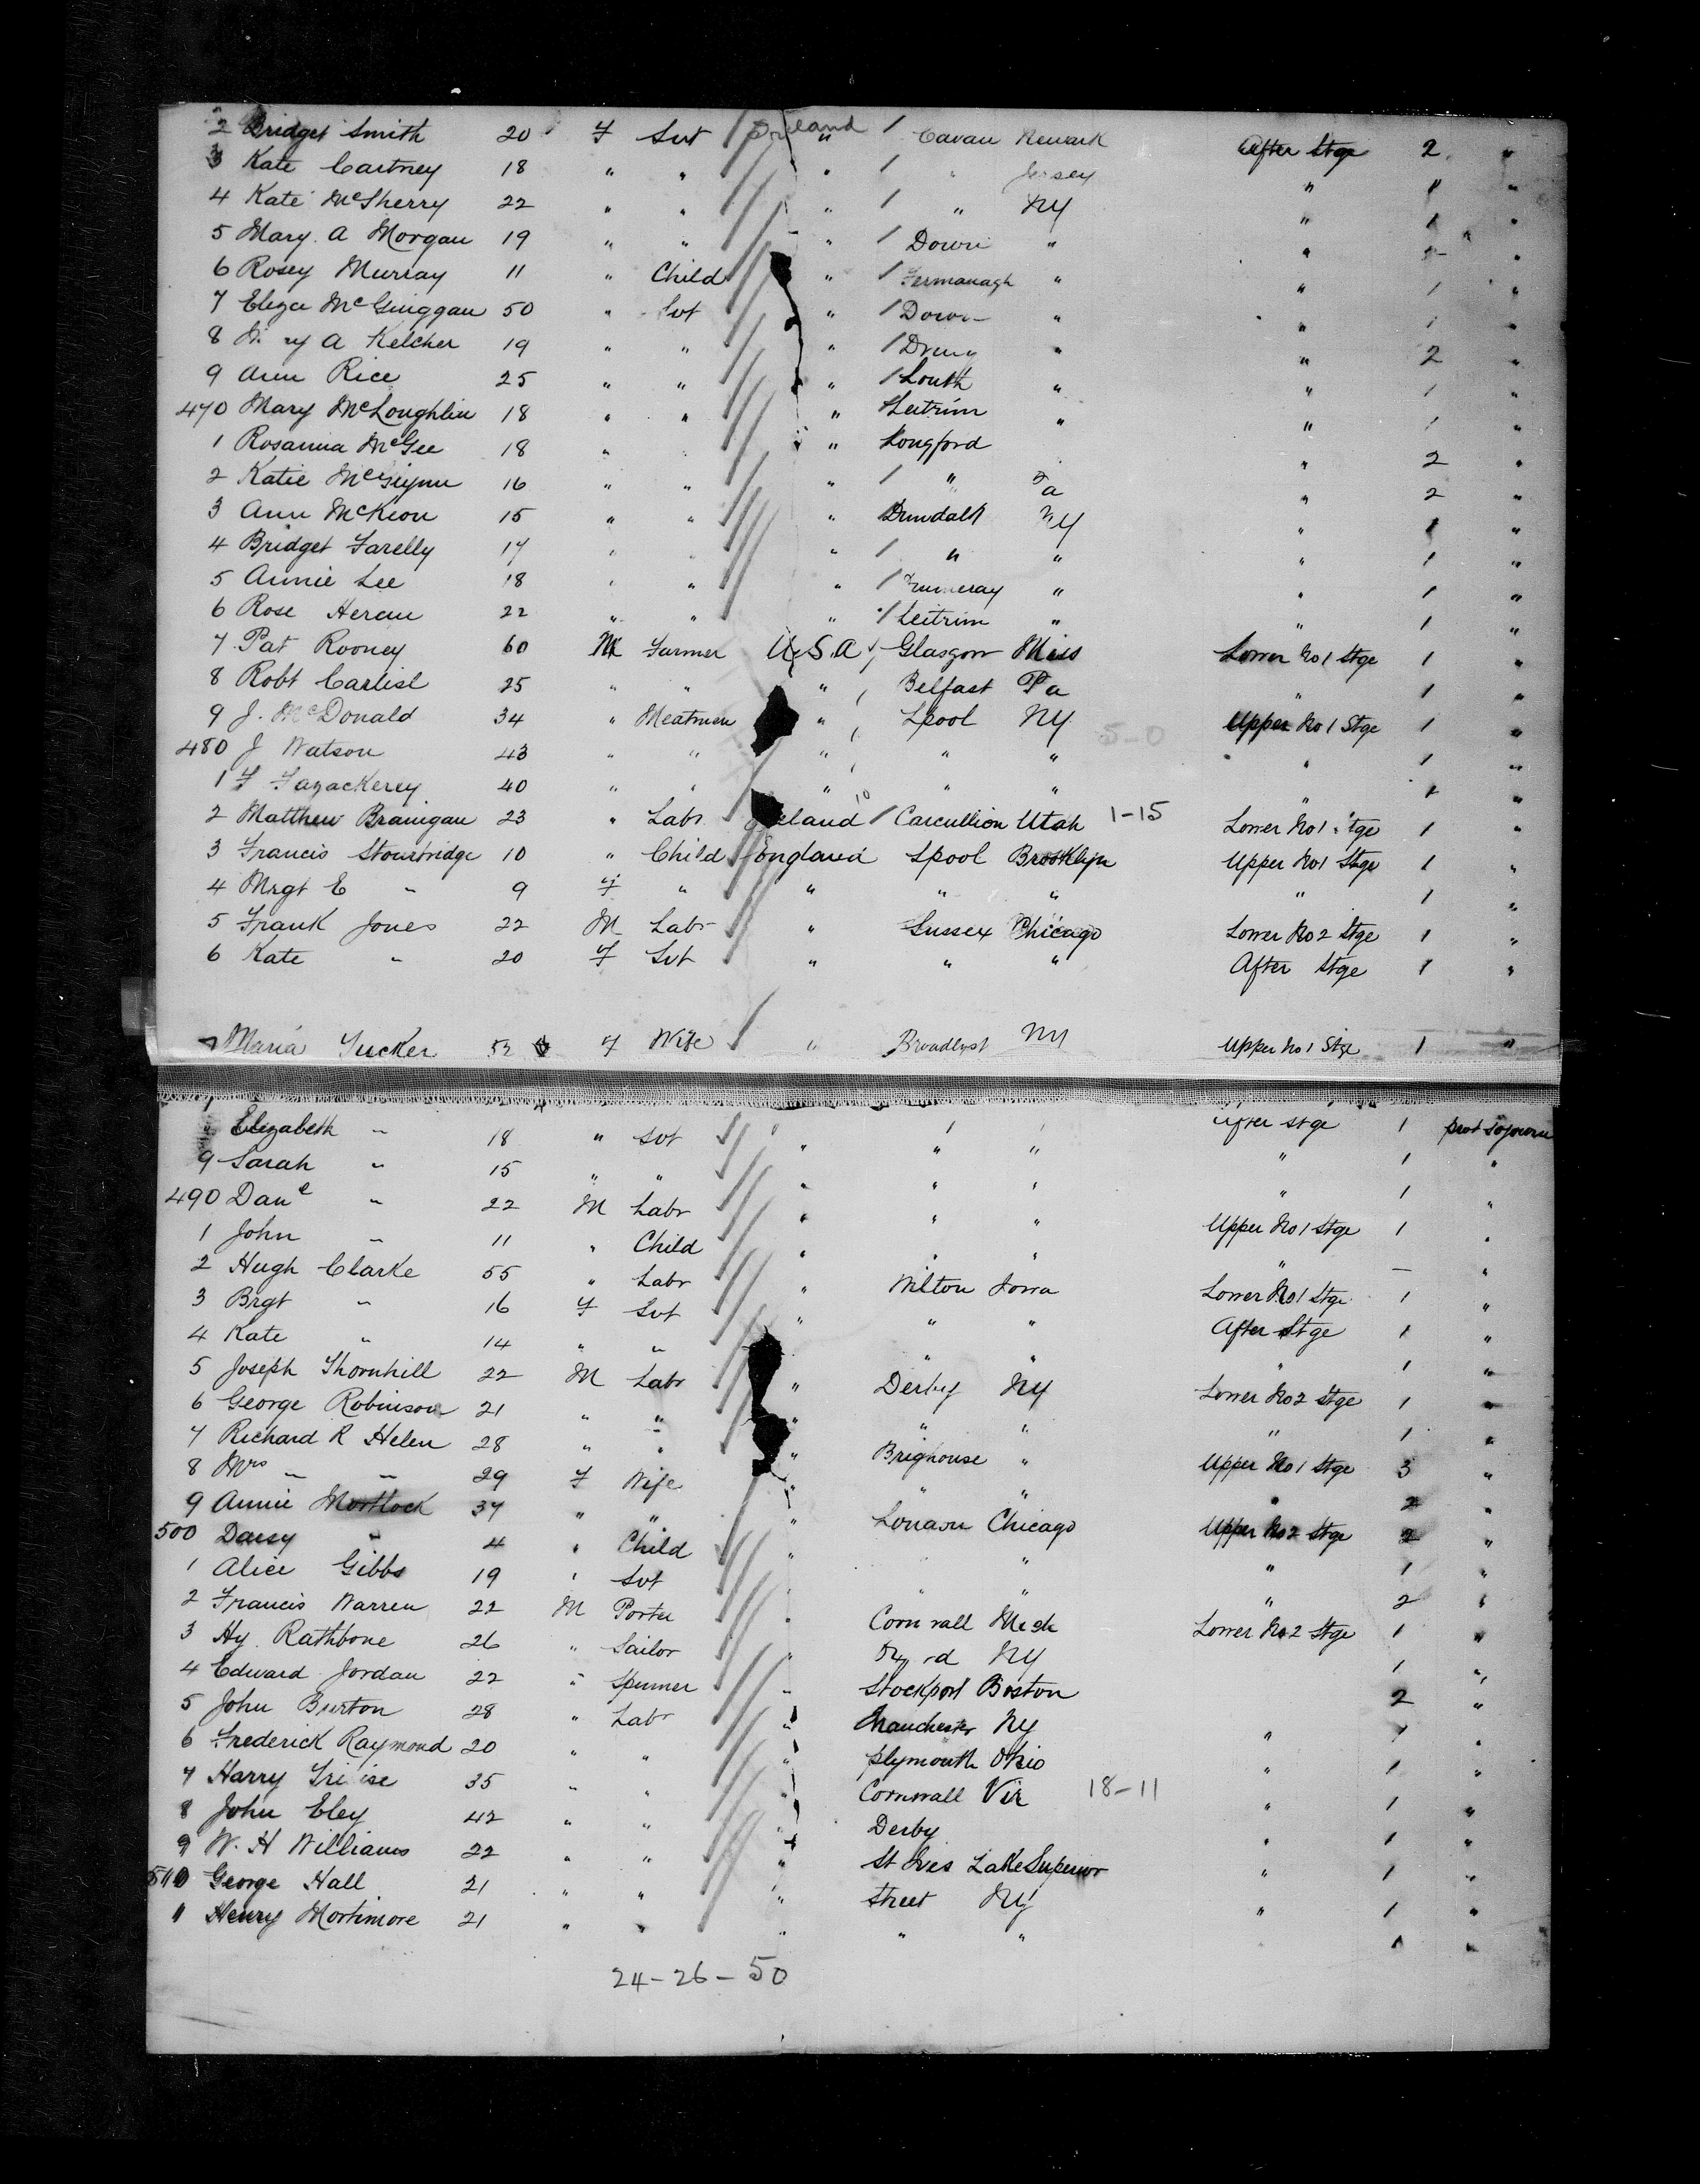 2 Bridget Smith 20 F Svt Ireland " Cavan Newark After Stge 2 "
3 Kate Cartney 18 " " " " Jersey " 1 "
4 Kate McSherry 22 " " " " NY " 1 "
5 Mary A Morgan 19 " " " Down " " 1 "
6 Rosey Murray 11 " Child " Fermanagh " " 1 "
7 Eliza McGuiggan 50 " Svt " Down " " 1 "
8 A Kelcher 19 " " " " " 2 "
9 Ann Rice 25 " " " Louth " " 1 "
470 Mary McLoughlin 18 " " " Leitrim " " 1 "
1 Rosanna McGee 18 " " Longford " 2 "
2 Katie 16 " " " " " 2 "
3 Ann McKeon 15 " " " Dundalk NY " 1 "
4 Bridget Farelly 17 " " " " " " 1 "
5 Annie Lee 18 " " " " " 1 "
6 Rose Heran 22 " " " Leitrim " " 1 "
7 Pat Rooney 60 M Farmer U.S.A Glasgow Miss Lower No 1 Stge 1 "
8 Robt Carlisl 25 " " " Belfast Pa " 1 "
9 J. McDonald 34 " Meatmen " Lpool NY 5-0 Upper No 1 Stge 1 "
480 J Watson 43 " " " " " " 1 "
1 F Fazackerey 40 " " " " " " 1 "
2 Matthew Branigan 23 " Labr Ireland Carcullion Utah 1-15 Lower No 1 Stge 1 "
3 Francis Stourbridge 10 " Child England Lpool Brooklyn Upper No 1 Stge 1 "
4 Mrgt E " 9 F " " " " " 1 "
5 Frank Jones 22 M Labr " Sussex Chicago Lower No 2 Stge 1 "
6 Kate " 20 F Svt " " " After Stge 1 "
7 Maria Tucker 52 F Wife " Broadlyst NY Upper No 1 Stge 1 "
Elizabeth " 18 " Svt " " " After Stge 1 prot sojourn
9 Sarah " 15 " " " " " " 1 "
490 Danl " 22 M Labr " " " Upper No 1 Stge 1 "
1 John " 11 " Child " " " " - "
2 Hugh Clarke 55 " Labr " Wilton Iowa Lower No 1 Stge 1 "
3 Brgt " 16 F Svt " " " After Stge 1 "
4 Kate " 14 " " " " " 1 "
5 Joseph Thornhill 22 M Labr " Derby NY Lower No 2 Stge 1 "
6 George Robinson 21 " " " " " " 1 "
7 Richard R Helen 28 " " " Brighouse " Upper No 1 Stge 3 "
8 Mrs " " 29 F Wife " " " 2 "
9 Annie Mortlock 37 " " " London Chicago Upper No 2 Stge 2 "
500 Daisy " 4 " Child " " " " 1 "
1 Alice Gibbs 19 " Svt " " " " 2 "
2 Francis Warren 22 M Porter " Cornwall Mich Lower No 2 Stge 1 "
3 Hy. Rathbone 26 " Sailor " NY 1 "
4 Edward Jordan 22 " Spinner " Stockport Boston 2 "
5 John Burton 28 " Labr " Manchester NY " 1 "
6 Frederick Raymond 20 " " " Plymouth Ohio " 1 "
7 Harry 35 " " " Cornwall Vir 18-11 " 1 "
8 John Eley 42 " " " Derby " 1 "
9 W. H Williams 22 " " " St Ives Lake Superior " 1 "
510 George Hall 21 " " " Street NY " 1 "
11 Henry Mortimore 21 " " " " " 1 "
24-26-50